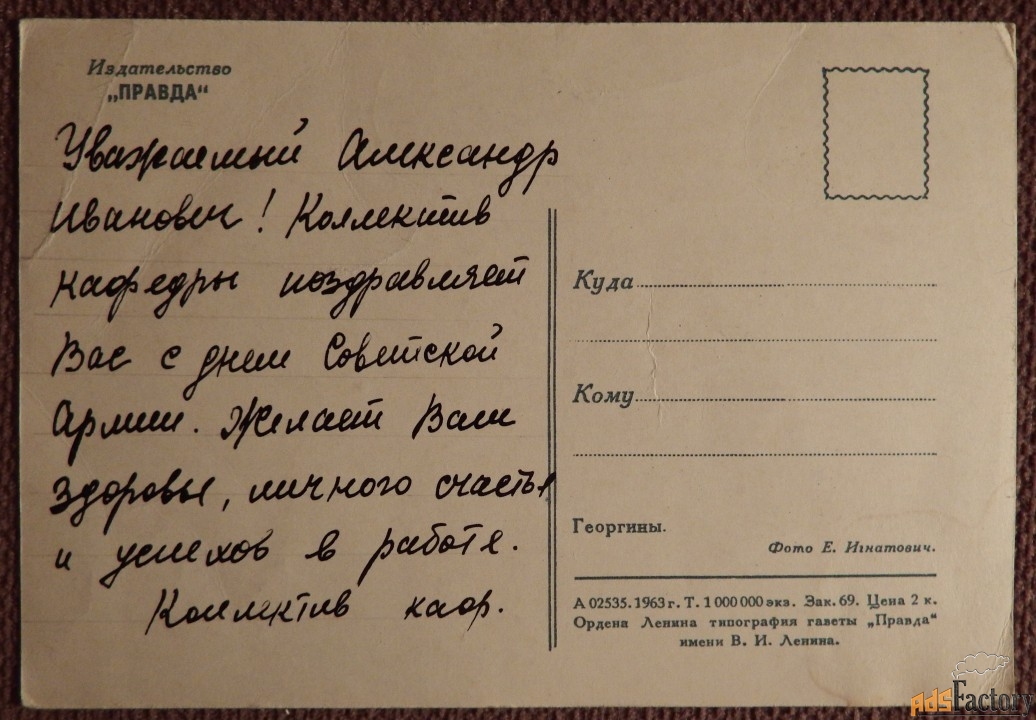 Издательство
„ПРАВДА“
Уважаемый Александр
Иванович! Коллектив
кафедры поздравляет
Вас с днем Советской
Армии. Желает Вам
здоровья, личного счастья
и успехов в работе.
Коллектив каф.
Куда
Кому
Георгины.
Фото Е. Игнатович.
А 02535. 1963 г. Т. 1 000 000 экз. Зак. 69. Цена 2 к.
Ордена Ленина типография газеты „Правда“
имени В. И. Ленина.
AdsFactory